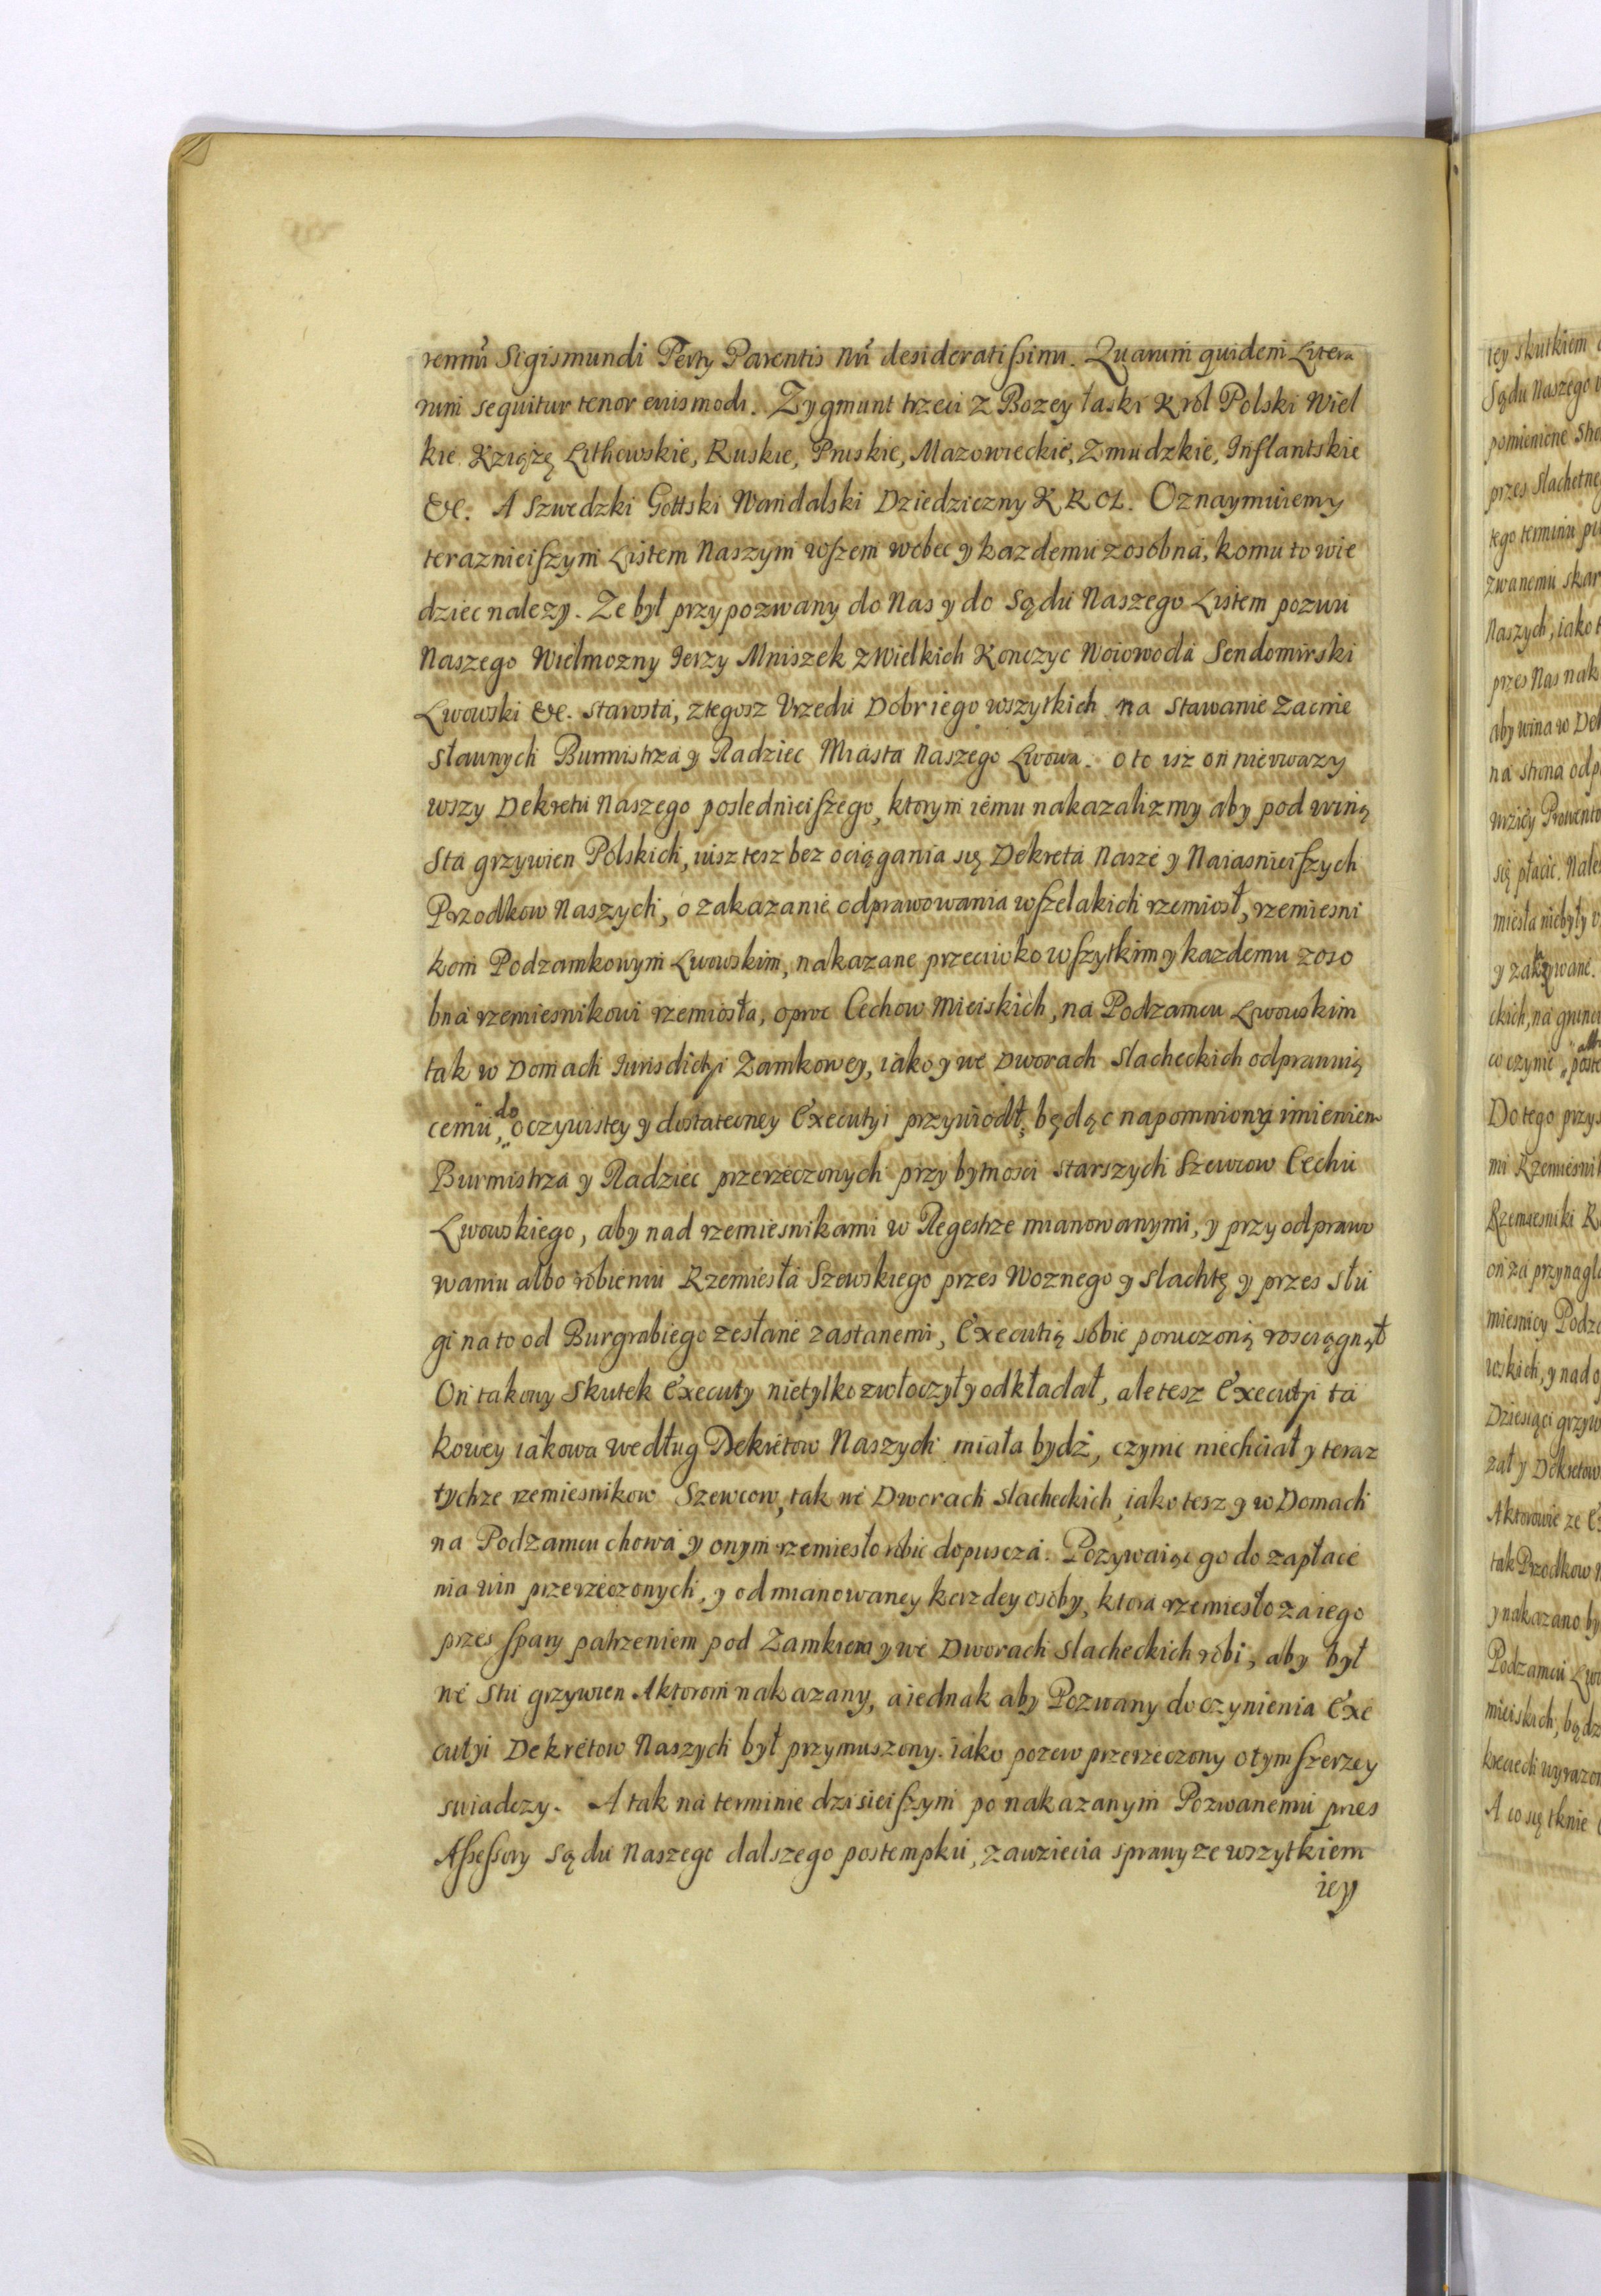 rennũ Sigismundi Terty Parentis Nrĩ desideratissimi. Quarum quidem Litera
rum sequitur tenor eiusmodi. Zygmunt trzeci z Bozey łaski Krol Polski Wiel
kie Xziążę Lithewskie, Ruskie, Pruskie, Mazowieckie, Zmudzkie, Inflantskie
&c. A Szwedzki Gottski Wandalski Dziedziczny KROL. Oznaymuiemy
teraznieiszym Listem Naszym wszem wobec y kazdemu zosobna, komu to wie
dziec nalezy. Ze był przypozwany do Nas y do Sądu Naszego Listem pozwu
Naszego Wielmozny Jerzy Mniszek z Wielkich Konczyc Woiowoda Sendomirski
Lwowski &c. Starosta, ztegosz Vrzedu Dobr iego wszytkich na stawanie Zacnie
Sławnych Burmistrza y Radziec Miasta Naszego Lwowa. o to isz on nieuwazy
wszy Dekretu Naszego posledniejszego, ktorym iemu nakazalizmy aby pod winą
Sta grzywien Polskich, iusz tesz bez ociągania się Dekreta Nasze y Naiasnieiszych
Przodkow Naszych, o zakazanie odprawowania wszelakich rzemiosł, rzemiesni
kom Podzamkowym Lwowskim, nakazane przeciwko wszytkim y kazdemu zoso
bna rzemiesnikowi rzemiosła, oproc Cechow Mieiskich, na Podzamcu Lwowskim
tak w Domach Jurisdictyi Zamkowey, iako y we Dworach Slacheckich odprawuią
cemu, do oczywistey y dostateczney Executyi przywiodł, będąc napomniony imieniem
Burmistrza y Radziec przerzeczonych przy bytnosci starszych Szewcow Cechu
Lwowskiego, aby nad rzemiesnikami w Regestrze mianowanymi, y przy odprawo
waniu albo robieniu Rzemiesła Szewskiego przes Woznego y slachtę y przes słu
gi na to od Burgrabiego zesłane zastanemi, Executią sobie poruczoną rosciągnął
On takowy Skutek Executy nietylko zwłoczył y odkładał, ale tesz Executyi ta
kowey iakowa według Dekretow Naszych miała bydz, czynic niechciał y teraz
tychze rzemiesnikow Szewcow, tak we Dworach slacheckich iako tesz y w Domach
na Podzamcu chowa y onym rzemiesło robic dopuscza. Pozywaiąc go do zapłace
nia win przerzeczonych, y od mianowaney kazdey osoby, ktora rzemiesło za iego
przes spary patrzeniem pod Zamkiem y we Dworach Slacheckich robi, aby był
we Stu grzywien Aktorom nakazany, a iednak aby Pozwany do czynienia Exe
cutyi Dekretow Naszych był przymuszony. iako pozew przerzeczony o tym szerzey
swiadczy. A tak na terminie dzisieiszym po nakazanym Pozwanemu przes
Assessory Sądu Naszego dalszego postempku, zawziecia sprawy ze wszytkiem
iey
tey skutkiem
Sądu Naszego
pomienione
przes Slachetne
tego terminu
zwanemu skar
Naszych, iako
przes Nas nak
aby wina w Dek
na strona odp
się płacic. Nale
miesła niebyły
y zakazywane.
ckich, na grunci
co czynic
Do tego przys
mi Rzemiesnik
Rzemiesniki
on za przynagla
miesnicy Podza
woskich, y nad
Dziesiąci grzyw
zał y Dekretow
Aktorowie ze
tak Przodkow
y nakazano by
Podzamcu Lwo
mieiskich, bądz
kreciech wyrazon
A co się tknie